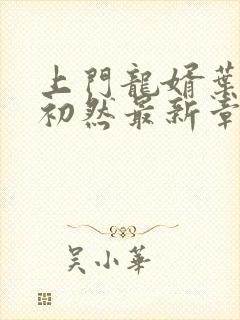 上門龍婿葉
初然最新章
吳小華